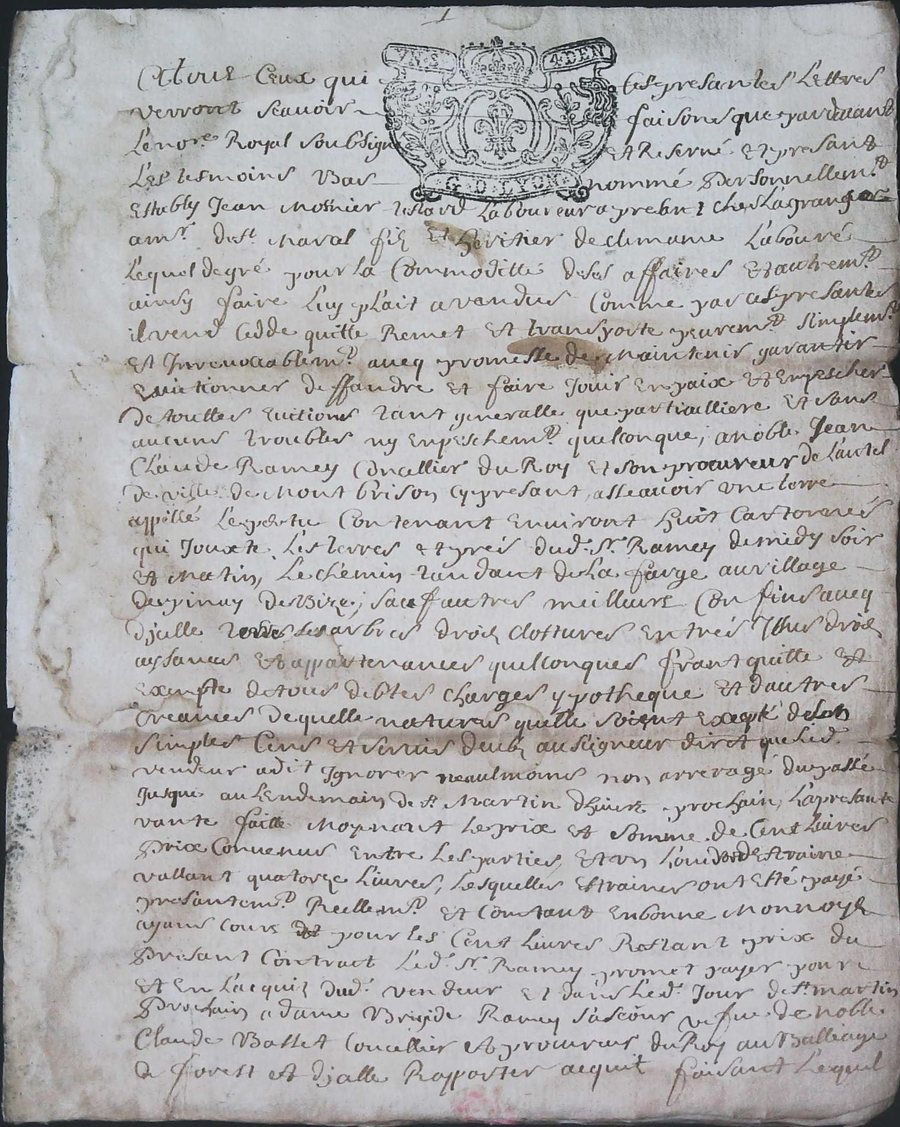 1
VN.S 4DEN
G.D.LYON
A tous Ceux qui Ces presantes Lettres
verront scavoir faisons que pardevant
Le no.re Royal soubsigné et Reservé et presant
Les tesmoins Bas nommé Personnellem.t
Estably Jean Laboureur
de st. fil et heritier de Labouré
Lequel de gré pour la Commoditté de ses affaires et autrem.t
ainsy faire luy plait a vendus Comme par ces presantes
il vend Cedde quitte Remet et transporte purem.t simplem.t
et Irrevocablem.t avecq promesse de maintenir garantir
Evictionner deffandre et faire Jouir en paix et enpescher
de touttes Evitions tant generalle que partialliere et sans
aucuns troubles ny enpeschem.t quilconque, a noble Jean
Claude Ramey Concellier du Roy et son procureur de Lautel
de ville de Montbrison cy presant, asscavoir une terre
appellé Le Contenant environt huit Cartonnés
qui Jouxte Les terres et prés dud. Sr. Ramey de midy soir
et matin, Le chemin tandant de La farge au village
, sauf autres meilleurs Confins avecq
d'jcelle les arbres drois clottures entrés Issus drois
aysances et appartenances quilconques frant quitte et
Exempte de tous debtes charges ypotheque et d'autres
creances de quelle natures quelle soient Excepté de son
simples Cens et servis deub au seigneur dirct que led.
vendeur a dit Ignorer neaulmoins non arreragé du passé
Jusque au Lendemain de st Martin d'hivert prochain, La presante
vante faitte Moynant le prix et somme de Cent Livres
Prix Convenus Entre Les parties, et un Louis d'Etraine
vallant quatorze Livres, Lesquelles Etraines ont esté payé
presantem.t Reellem.t et Constant en bonne Monnoye
ayans Cours pour les Cent Livres Restant prix du
Presant Contract Led. Sr. Ramey promet payer pour
et en Lacquit dud. vendeur et dans led. Jour de st martin
Prochain a dame Brigide Ramey sa scour vefve de noble
Claude Basset Concellier et procureur du Roy au Balliage
de forest et d'jcelle Rapporter acquit faisant Lequel